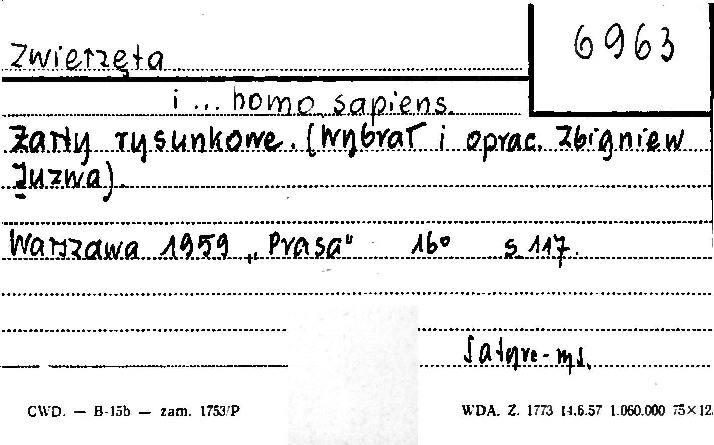 6963
Zwierzęta
i ... homo sapiens.
Żarty rysunkowe. (Wybrał i oprac. Zbigniew
Juzwa).
Warszawa 1959 „Prasa" 16° s 117.
CWD. — B-15b — zam. 1753/P
WDA. Z. 1773 14.6.57 1.060.000 75×12.